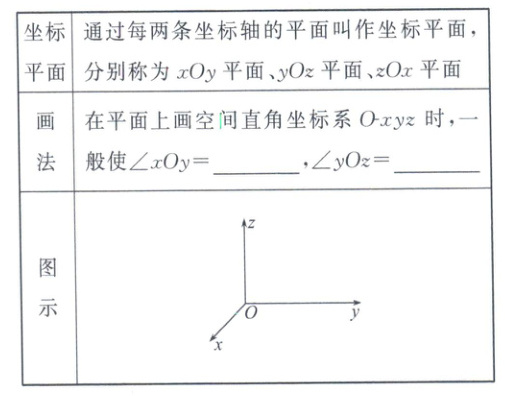 坐标
平面
通过每两条坐标轴的平面叫作坐标平面,
分别称为 xOy 平面、yOz 平面、zOx 平面
画
法
在平面上画空间直角坐标系 O-xyz 时,一
般使∠xOy=________,∠yOz=________
图
示
z
O
y
x